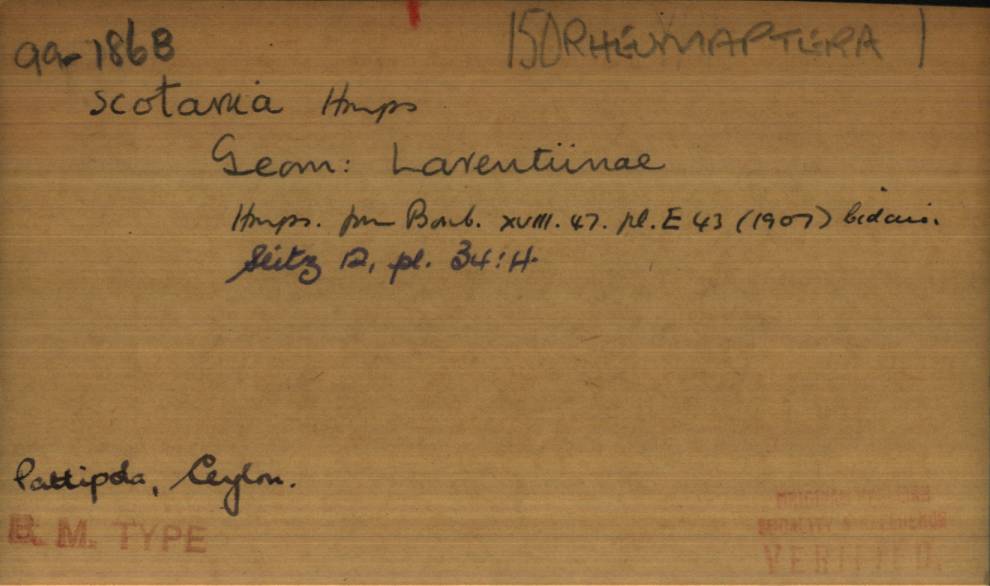 99-1868 150 RHEUMAPTERA 1
scotaria Hmps
Geom: Larentiinae
Hmps. Jnn Bomb. XVIII. 47. pl. E 43 (1907) Cidaria.
Seitz 12, pl. 34:H.
Pattipola, Ceylon.
B. M. TYPE
VERIFIED.